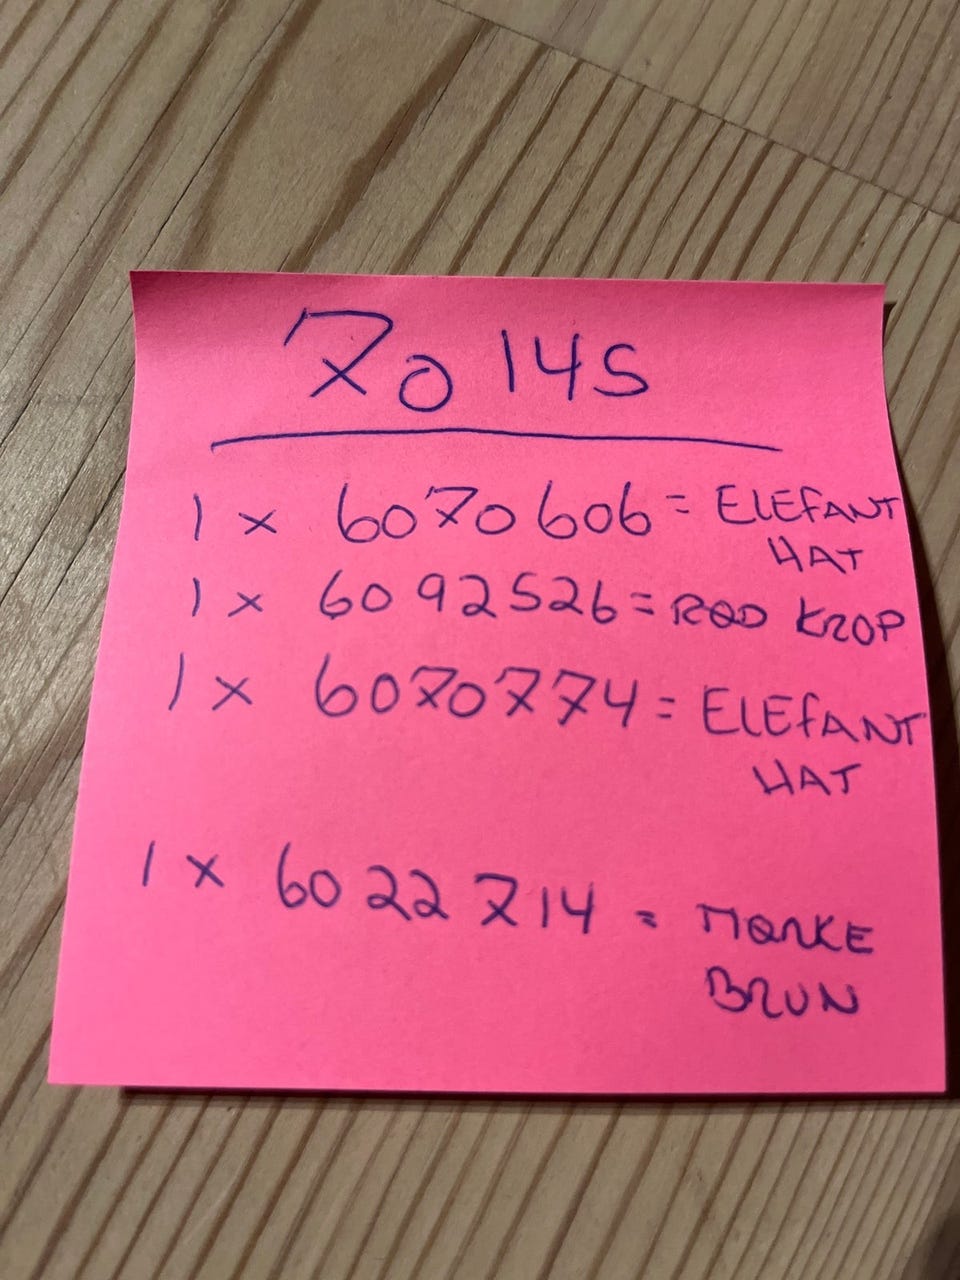 70145
1 x 6070606 = ELEFANT
HAT
1 x 6092526 = RØD KROP
1 x 6070774 = ELEFANT
HAT
1 x 6022714 = MØRKE
BRUN